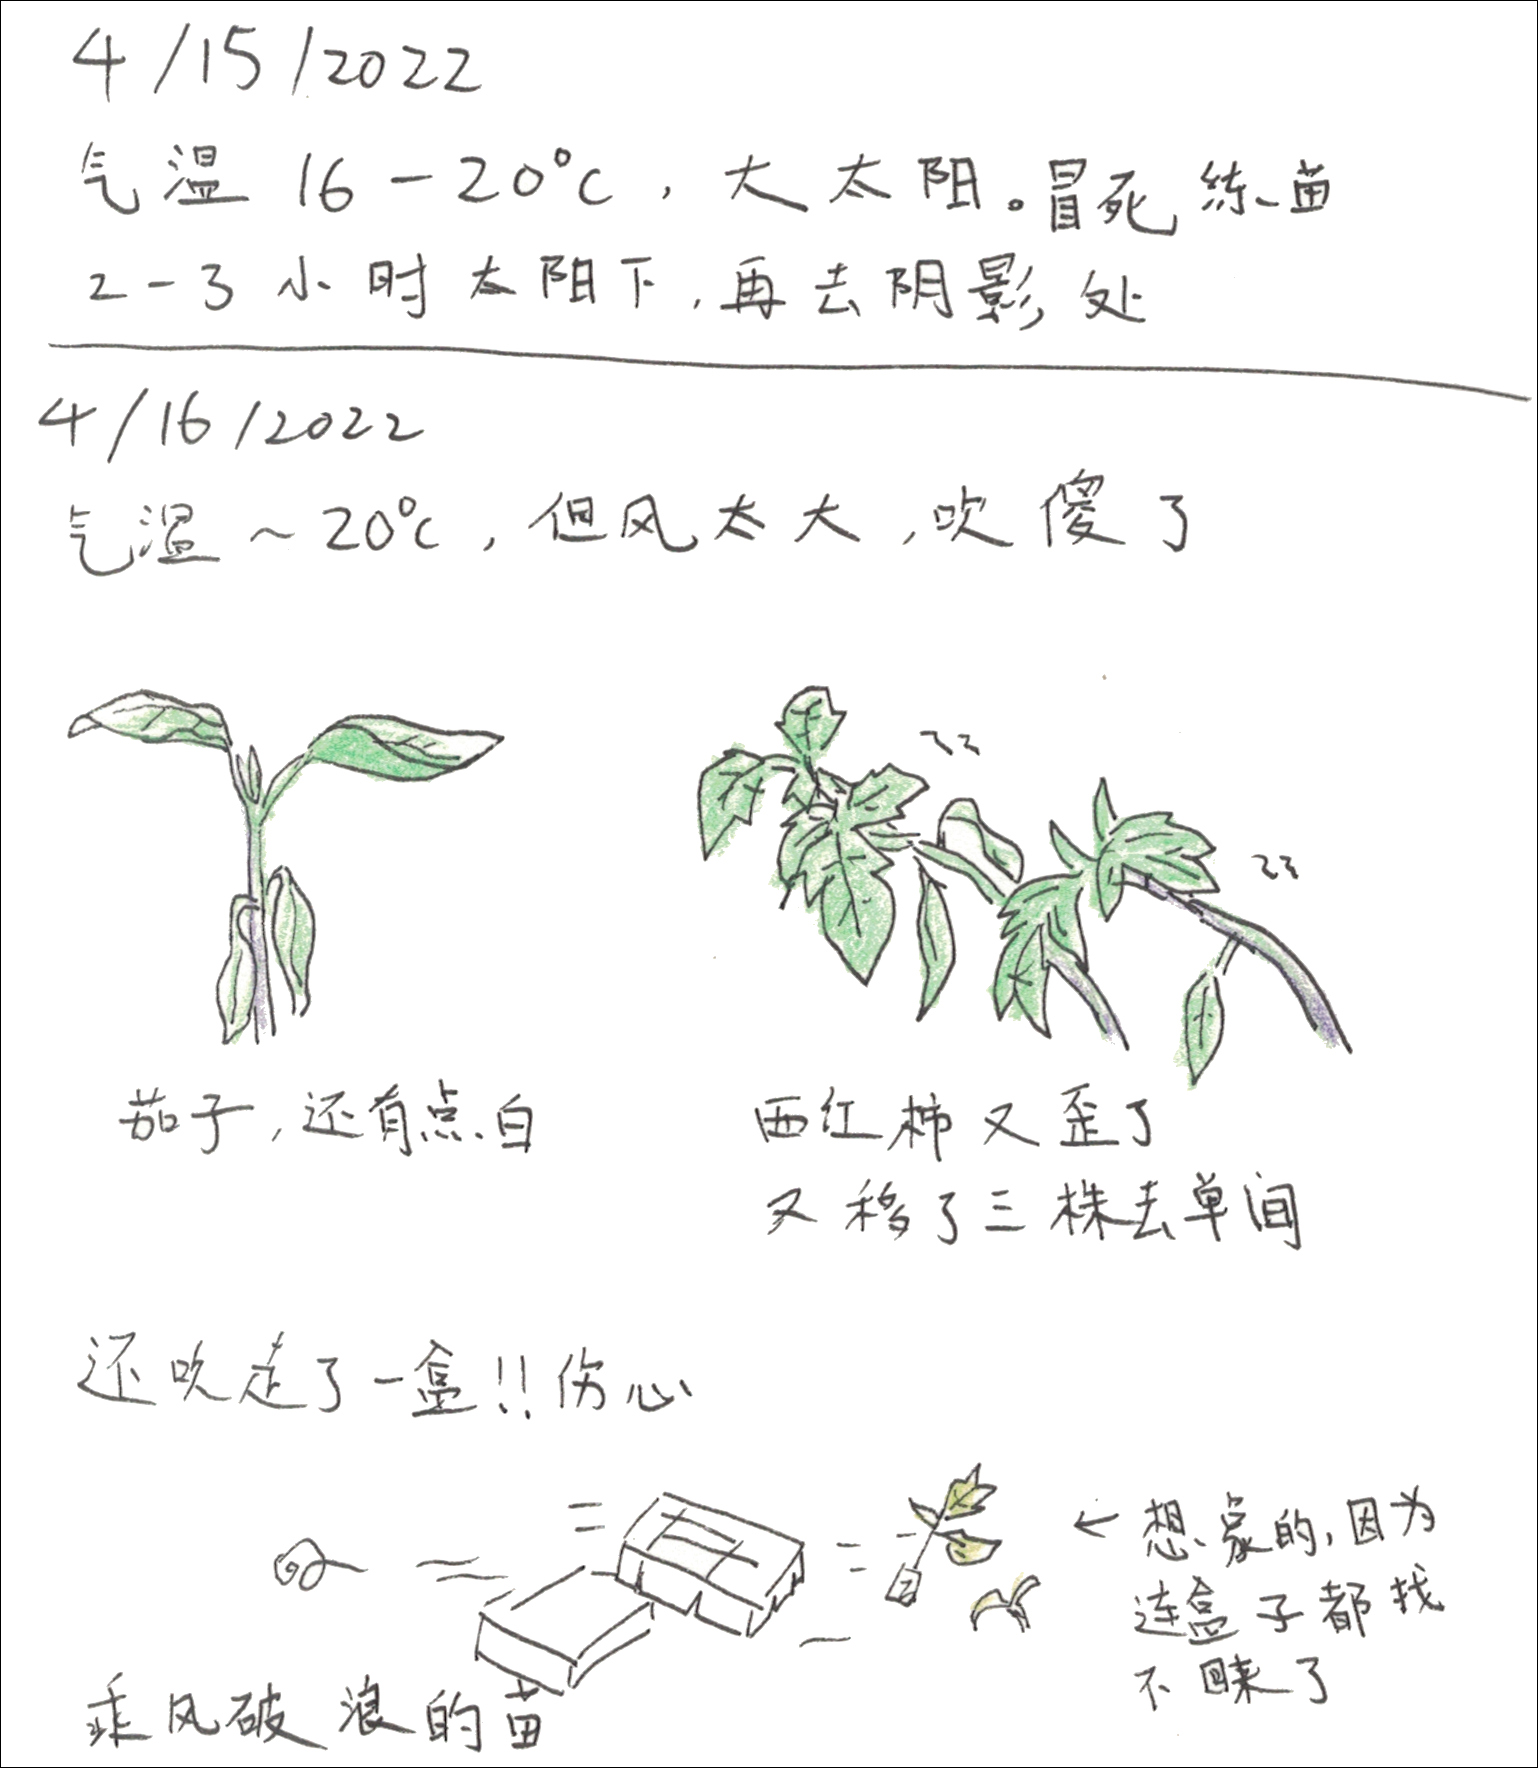 4/15/2022
气温 16-20°C，大太阳。冒死练苗
2-3小时太阳下，再去阴影处
4/16/2022
气温~20°C，但风太大，吹傻了
茄子，还有点白
西红柿又歪了
又移了三株去单间
还吹走了一盒!!伤心
←想象的，因为
连盒子都找
不回来了
乘风破浪的苗